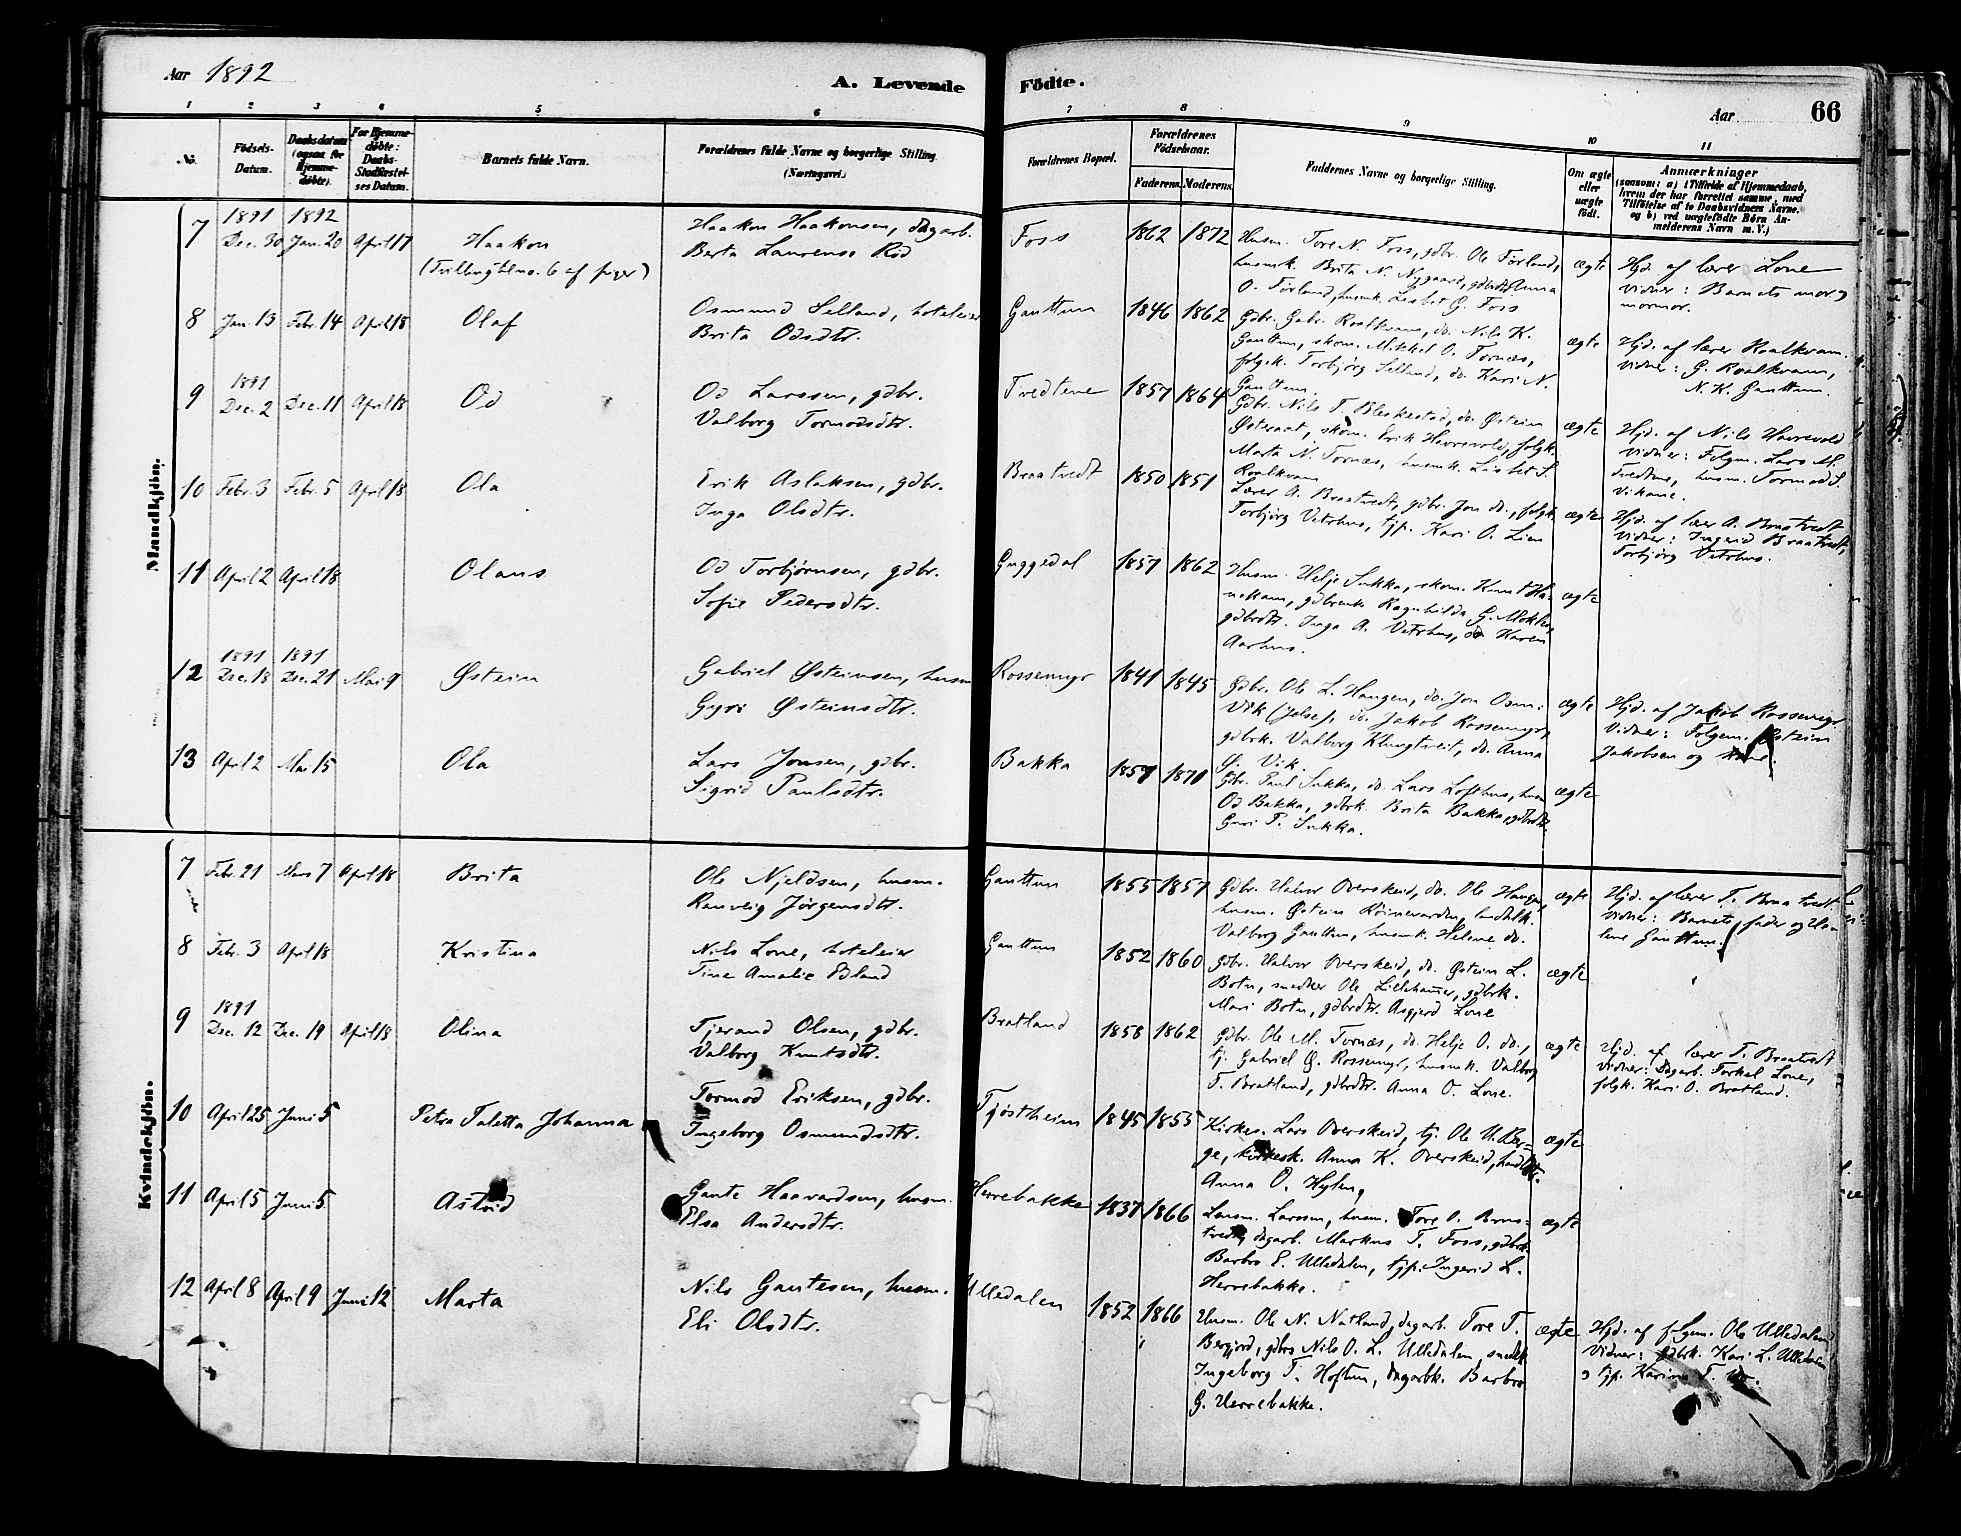 Aar 1892
A. Levende
Födte.
Aar
66
1 2 3 4 5 6 7 8 9 10 11
No.
Födsels-Datum.
Daabsdatum (ogsaa for Hjemme-döbte).
For Hjemme-döbte: Daabs-Stadfæstel-ses Datum.
Barnets fulde Navn.
Forældrenes fulde Navne og borgerlige Stilling. (Næringsvei.)
Forældrenes Bopæl.
Forældrenes Födselsaar.
Faderens. Moderens.
Faddernes Navne og borgerlige Stilling.
Om ægte eller uægte födt.
Anmærkninger
(saasom: a) i Tilfælde af Hjemmedaab,
hvem der har forrettet samme, med
Tilföielse af to Daabsvidners Navne,
og b) ved uægtefödte Börn An-
melderens Navn m. V.)
Mandkjön.
7 1891 Dec. 30 1892 Jan. 20 April 17 Haakon
Haakon Haakonsen, dagarb.
Berta Laurense Rød
Foss 1862 1872
Husm. Tore N. Foss, gdbr. Ole Førland,
husmk. Brita N. Nygaard, gdbrdtr.
O. Førland, husmk. Lisbet G. Foss
ægte
Hjd. af lærer Lone
Vidner: Barnets mor og
mormor.
8 Jan. 13 Febr. 14 April 18 Olaf
Osmund Selland, hoteleier
Brita Odsdtr.
Gauttun 1846 1862
Gdbr. Gabr. Roalkvam, do. Nils K.
Gauttun, skom. Mikkel O. Tornæs,
folgk. Torbjørg Selland, do. Kari N.
Gauttun.
ægte
Hjd. af lærer Roalkvam.
Vidner: G. Roalkvam,
N. K. Gauttun.
9 1891 Dec. 2 Dec. 11 April 18 Od
Od Larssen, gdbr.
Valborg Tormodsdtr.
Tvedtene 1857 1864
Gdbr. Nils T. Bleskestad, do. Østein
Østeraat, skom. Erik Havrevold, folgk.
Marta N. Tornæs, husmk. Lisbet S.
Roalkvam
ægte
Hjd. af Nils Havrevold
Vidner: Folgm. Lars M.
Tvedtene, husm. Tormod S.
Vikane.
10 Febr. 3 Febr. 5 April 18 Ola
Erik Aslaksen, gdbr.
Inga Olsdtr.
Braatvedt 1850 1851
Lærer A. Braatvedt, gdbr. Jon do., folgk.
Torbjørg Vetrhus, tjp. Kari O. Lien
ægte
Hjd. af lærer A. Braatvedt
Vidner: Ingerid Braatvedt,
Torbjørg Vetrhus.
11 April 2 April 18 Olaus
Od Torbjørnsen, gdbr.
Sofie Pedersdtr.
Guggedal 1857 1862
Husm. Helje Sukka, skom. Knut Ha-
nakam, gdbrenk. Ragnhilda G. Mokleiv,
gdbrdtr. Inga A. Vetrhus, do. Karen
Aarhus.
ægte
12 1891 Dec. 18 1891 Dec. 21 Mai 9 Østein
Gabriel Østeinsen, husm
Gyri Østeinsdtr.
Rossemyr 1841 1845
Gdbr. Ole L. Haugen, do. Jon Osm.
Vik (Jelse), do. Jakob Rossemyr,
gdbrk. Valborg Klungtveit, do. Anna
G. Vik.
ægte
Hjd. af Jakob Rossemyr
Vidner: Folgem. Østein
Jakobsen og
13 April 2 Mai 15 Ola
Lars Jonsen, gdbr.
Sigrid Paulsdtr.
Bakka 1857 1870
Gdbr. Paul Sukka, do. Lars Lofthus, husm
Od Bakka, gdbrk. Brita Bakka, gdbrdtr.
Guri P. Sukka.
ægte
Kvindekjön.
7 Febr. 21 Mars 7 April 18 Brita
Ole Njeldsen, husm.
Ranveig Jørgensdtr.
Gauttun 1855 1857
Gdbr. Halvor Overskeid, do. Ole Haugen,
husm. Østein Röinevarden,
Valborg Gauttun, husmk. Helene do.
ægte
Hjd. af lærer T. Braatvedt
Vidner: Barnets fader og He-
lene Gauttun.
8 Febr. 3 April 18 Kristina
Nils Lone, hoteleier
Tine Amalie Edland
Gauttun 1852 1860
Gdbr. Halvor Overskeid, do. Østein L.
Botn, snedker Ole Lillehamer, gdbrk.
Mari Botn, gdbrdtr. Asgjerd Lone
ægte
9 1891 Dec. 12 Dec. 19 April 18 Olina
Tjerand Olsen, gdbr.
Valborg Knutsdtr.
Bratland 1858 1862
Gdbr. Ole M. Tornæs, do. Helje O. do.,
tj. Gabriel G. Rossemyr, husmk. Valborg
T. Bratland, gdbrdtr. Anna O. Lone.
ægte
Hjd. af lærer T. Braatvedt
Vidner: Dagarb. Torkel Lone,
folgk. Kari O. Bratland.
10 April 25 Juni 5 Petra Taletta Johanna
Tormod Eriksen, gdbr.
Ingeborg Osmundsdtr.
Tjøstheim 1845 1855
Kirkes. Lars Overskeid, tj. Ole U. Ber-
ge, kirkesk. Anna K. Overskeid,
Anna O. Hylen,
ægte
11 April 5 Juni 5 Astrid
Gaute Haavardsen, husm.
Elsa Andersdtr.
Herrebakke 1837 1866
Lensm. Larssen, husm. Tore O. Braa-
tvedt, dagarb. Markus T. Foss, gdbrk.
Barbro E. Ulledalen, tjp. Ingerid L.
Herrebakke.
ægte
12 April 8 April 9 Juni 12 Marta
Nils Gautesen, husm.
Eli Olsdtr.
Ulledalen 1852 1866
Husm. Ole N. Natland, dagarb. Tore T.
Bergjord, gdbrs Nils O. L. Ulledalen,
Ingeborg T. Hoftun, dagarbk. Barbro
G. Herrebakke.
ægte
Hjd. af folgem. Ole Ulledalen
Vidner: gdbrk. Kari L. Ulledalen
o tjp. Karina T.